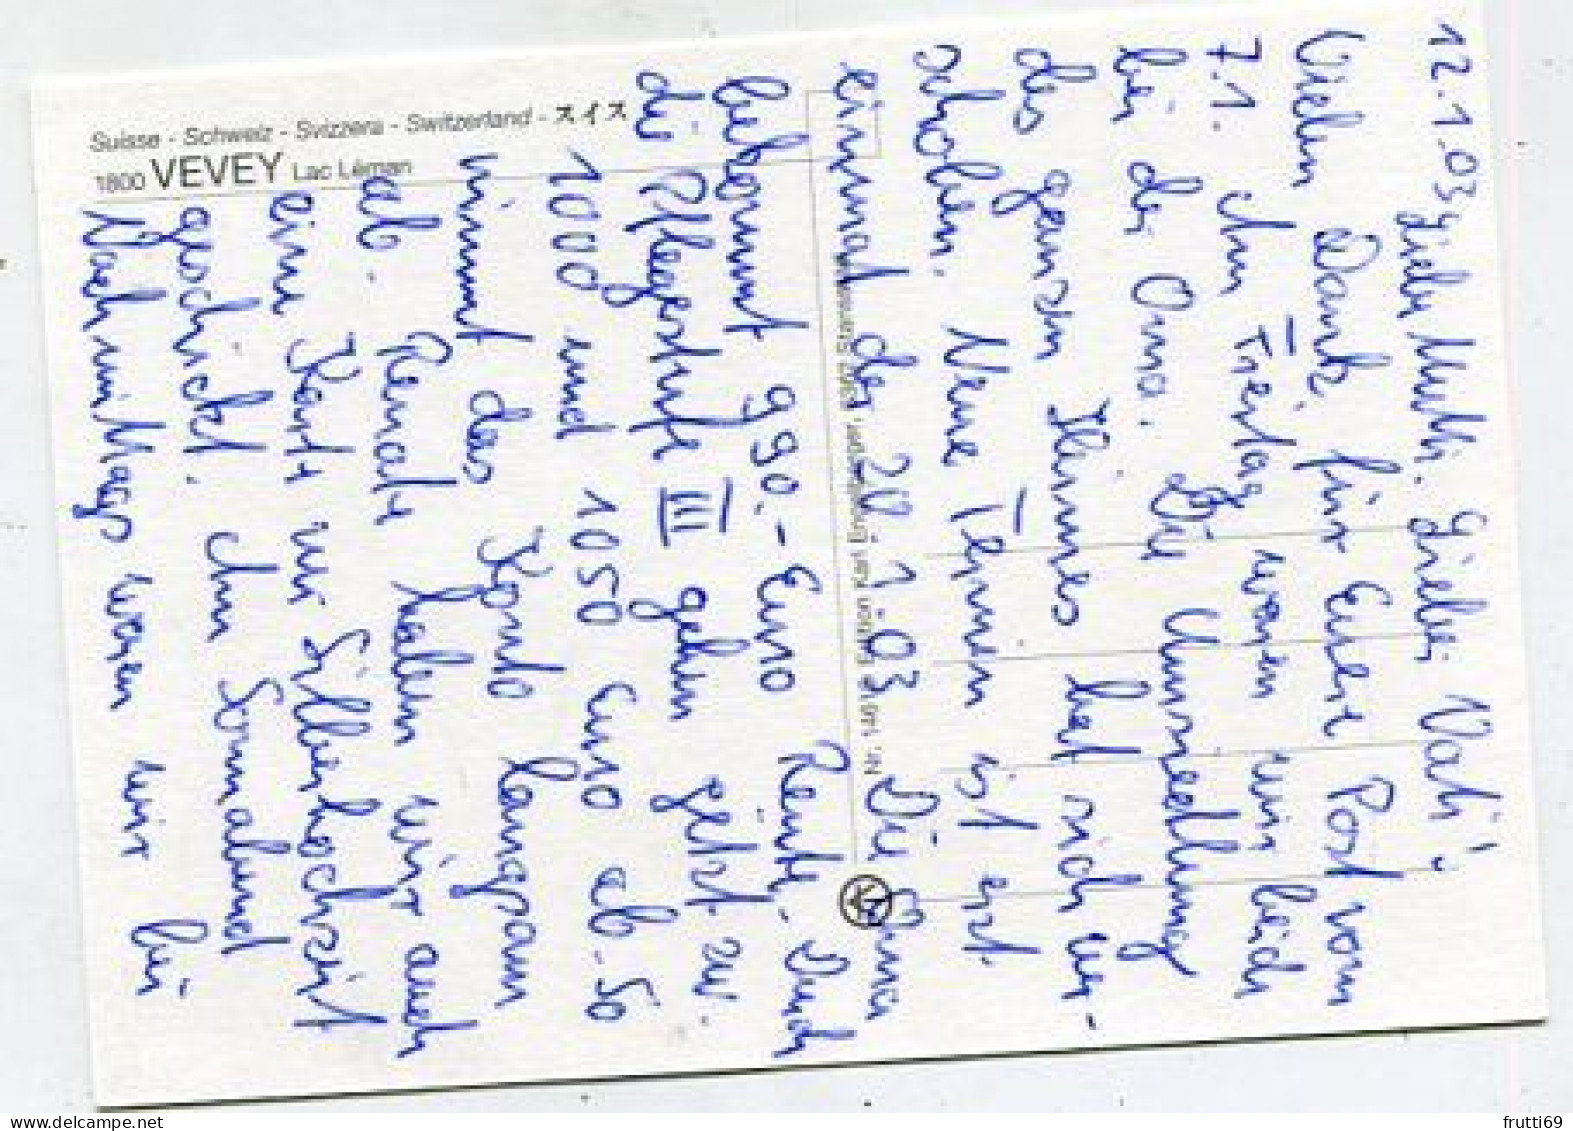 Suisse - Schweiz - Svizzera - Switzerland - スイス
1800 VEVEY Lac Léman
12.1.03 Liebe Mutti. Lieber Vati!
Vielen Dank für Eure Post vom
7.1. Am Freitag waren wir beide
bei der Oma. Die Umsiedlung
des ganzen Heimes hat sich ver-
schoben. Neue Termin ist erst
einmal der 20.1.03 Die Oma
bekommt 990.- Euro Rente. Durch
die Pflegestufe III gehen jetzt zw.
1000 und 1050 Euro ab. So
nimmt das Konto langsam
ab. Renate haben wir auch
eine Karte zur Silberhochzeit
geschickt. Am Sonnabend
Nachmittag waren wir bei
Edition Karl Engelberger, 6362 Stansstad
frutti69